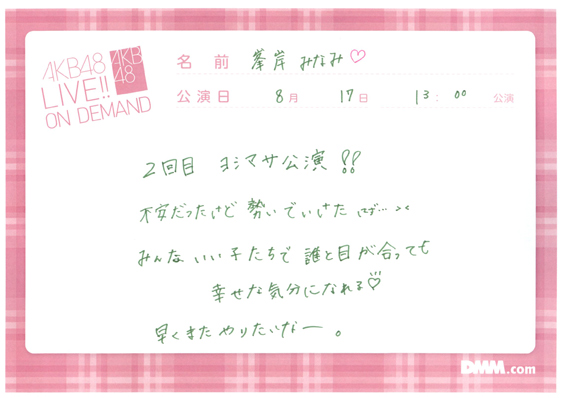 AKB48
LIVE!!
ON DEMAND
AKB
48
名前 峯岸 みなみ♡
公演日 8月 17日 13:00 公演
2回目 ヨシマサ公演!!
不安だったけど 勢いでいけた
みんな いい子たちで 誰と目が合っても
幸せな気分になれる♡
早くまた やりたいなー。
DMM.com